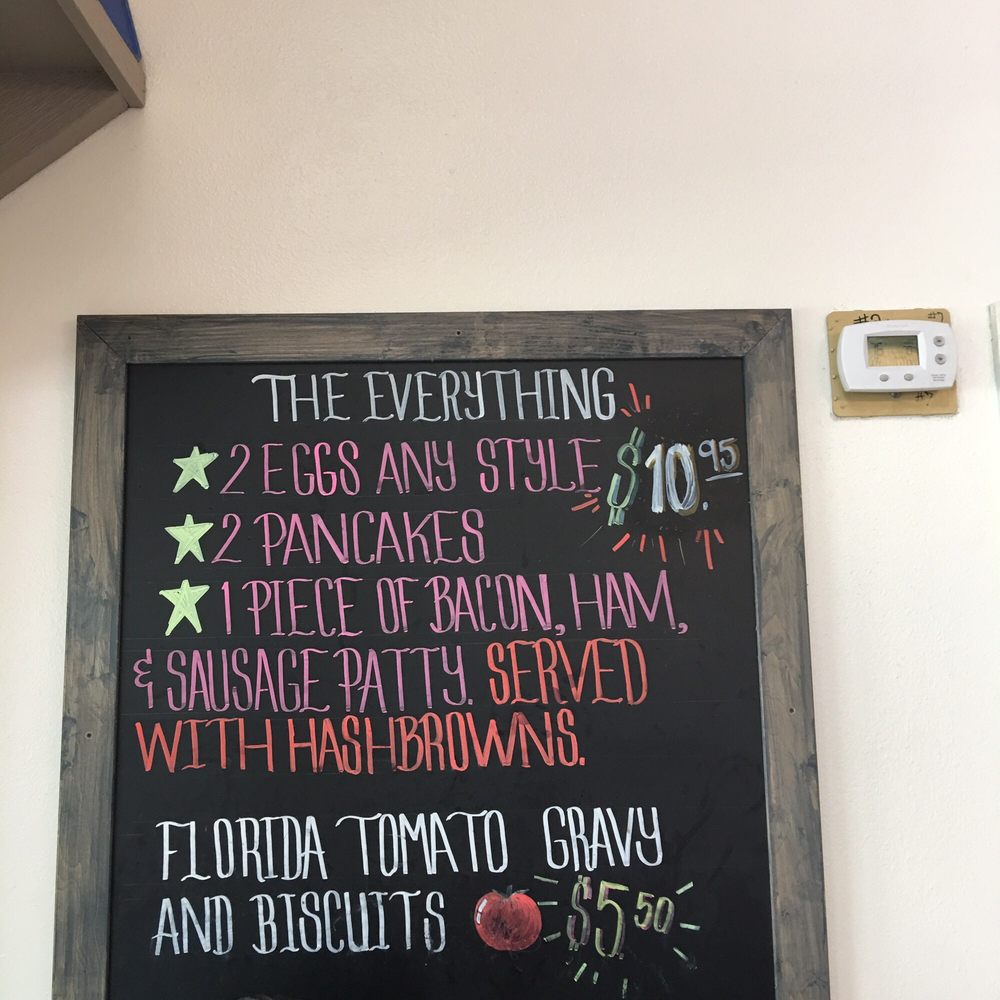 THE EVERYTHING
2 EGGS ANY STYLE $10.95
2 PANCAKES
1 PIECE OF BACON, HAM,
& SAUSAGE PATTY. SERVED
WITH HASHBROWNS.
FLORIDA TOMATO GRAVY
AND BISCUITS $5.50